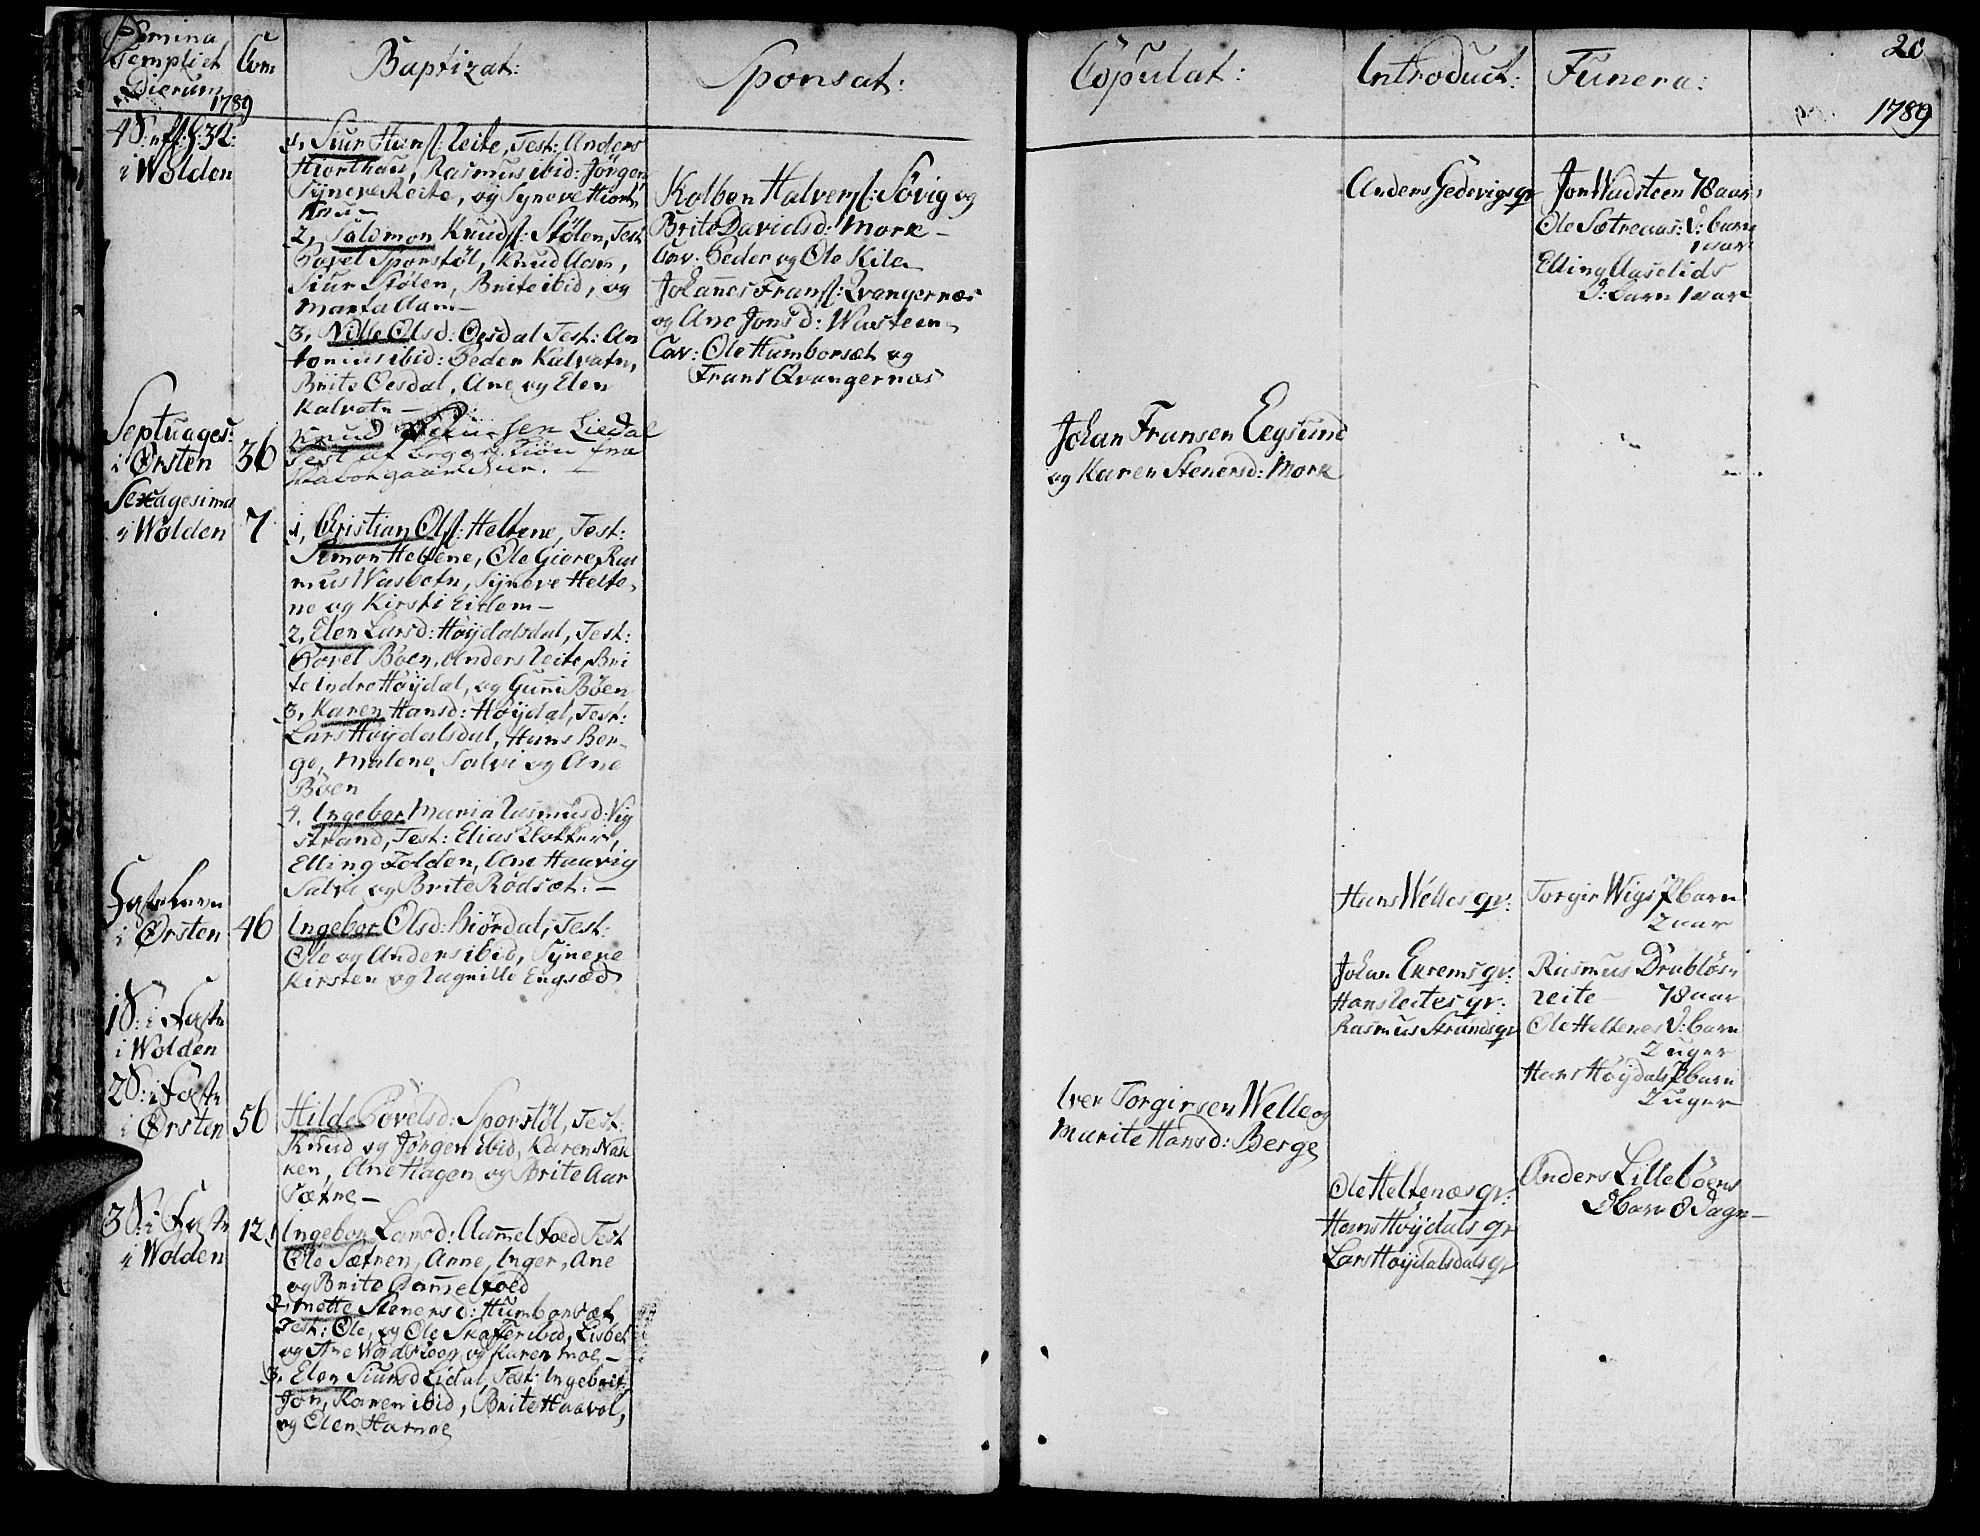 Nomina
Templi et
Dierum
1789
Com
Baptizat:
Sponsat:
Copulat:
Introduct:
Funera:
20
1789
4 S: eft: h: 3 K:
i Wolden
1, Siur Hansſ: Reite, Test: Anders
Hiorthau, Rasmus ibid: Jørgen
Syneve Reite, og Synove Hiort
2, Salomon Knudſ: Stølen, Test:
Povel Sporstøl, Knud Aam,
Siur Stølen, Brite ibid, og
Marta Aam –
3, Nille Olsd: Øesdal Test: An
tonius ibid: Peder Kalvatn,
Brite Øesdal, Ane og Elen
Kalvatn –
Kolben Halverſ: Søvig og
Brite Davidsd: Mork –
Cav: Peder og Ole Kile
Johanes Franſ: Qvangernæs
og Ane Jonsd: Wasteen
Cav: Ole Humborsæt og
Frans Qvangernæs
Anders Gedsvigs qv:
Jon Wadsteen 78 aar
Ole Sætreaas: D: barn
1 aar
Elling Aaselids
D: barn 1 aar
Septuages:
i Ørsten
36
Knud Lisdal
Johan Fransen Eegsund
og Karen Stenersd: Mork
Sexagesima
i Wolden
7
1, Christian Olſ: Heltene, Test:
Simon Heltene, Ole Giere, Ras
mus Wasbotn, Synove Helte
ne og Kirsti Eidem –
2, Elen Larsd: Høydalsdal, Test:
Povel Böen, Anders Reite, Bri
te Indre Høydal, og Guri Böen
3, Karen Hansd: Høydal, Test:
Lars Høydalsdal, Hans Ber-
ge, Malene, Salvi og Ane
Böen
4. Ingebor Maria Rasmusd: Vig
strand, Test: Elias Klokker,
Elling Folden, Ane Haavig
Salvi og Brite Rødsæt: –
Fastelavn
i Ørsten
46
Ingebor Olsd: Biørdal, Test:
Ole og Anders ibid, Synene
Kirsten og Ragnille Engsæd
Hans Welles qv:
Torgir Wigs P barn
2 aar
1 S: i Faste
i Wolden
Johan Ekrems qv:
Hans Reites qv:
Rasmus Strands qv
Rasmus Drabløs i
Reite – 78 aar
Ole Heltenes D: barn
2 uger
Hans Høydals P barn
2 uger
2 S: i Faste
i Ørsten
56
Hilde Povelsd: Sporstøl, Test:
Knud og Jørgen ibid, Karen Nak
ken, Ane Hagen og Brite Aar
Sætre –
Iver Torgirsen Welle og
Marite Hansd: Berge
Anders Lillebøens
D barn 8 Dage –
3 S: i Faste
i Wolden
12
1 Ingebor Larsd: Aamelfoed Test
Ole Sætren, Arne, Inger, Ane
og Brite Aamelfoed
2, Mette Stenersd: Humborsæt
Test: Ole, og Ole Skaffer ibid, Lisbet
og Ane Wadsteen og Karen Moe –
3, Elen Siursd Lidal, Test: Ingebrit
Jon, Karen ibid, Brite Haavol,
og Elen Hamre
Ole Heltenæs qv:
Hans Høydals qv
Lars Høydalsdals qv